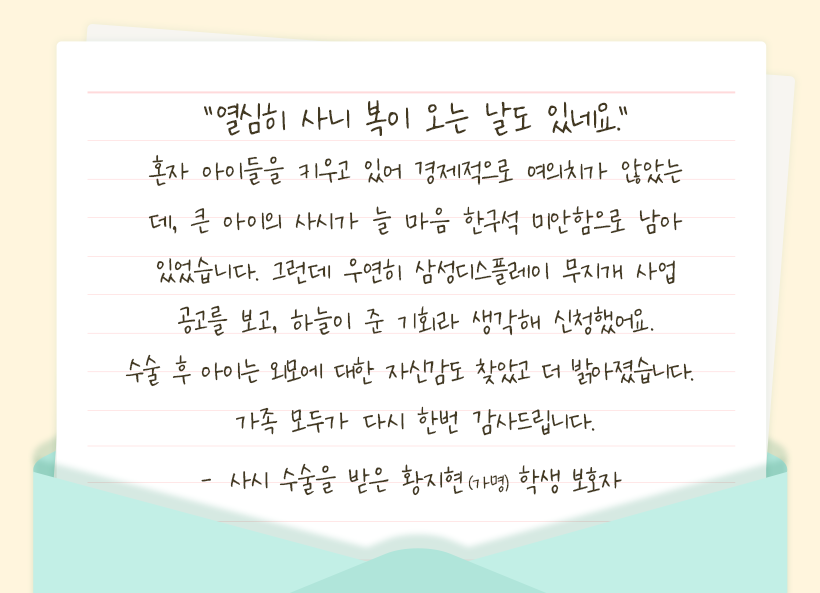 "열심히 사니 복이 오는 날도 있네요."
혼자 아이들을 키우고 있어 경제적으로 여의치가 않았는
데, 큰 아이의 사시가 늘 마음 한구석 미안함으로 남아
있었습니다. 그런데 우연히 삼성디스플레이 무지개 사업
공고를 보고, 하늘이 준 기회라 생각해 신청했어요.
수술 후 아이는 외모에 대한 자신감도 찾았고 더 밝아졌습니다.
가족 모두가 다시 한번 감사드립니다.
- 사시 수술을 받은 황지현(가명) 학생 보호자